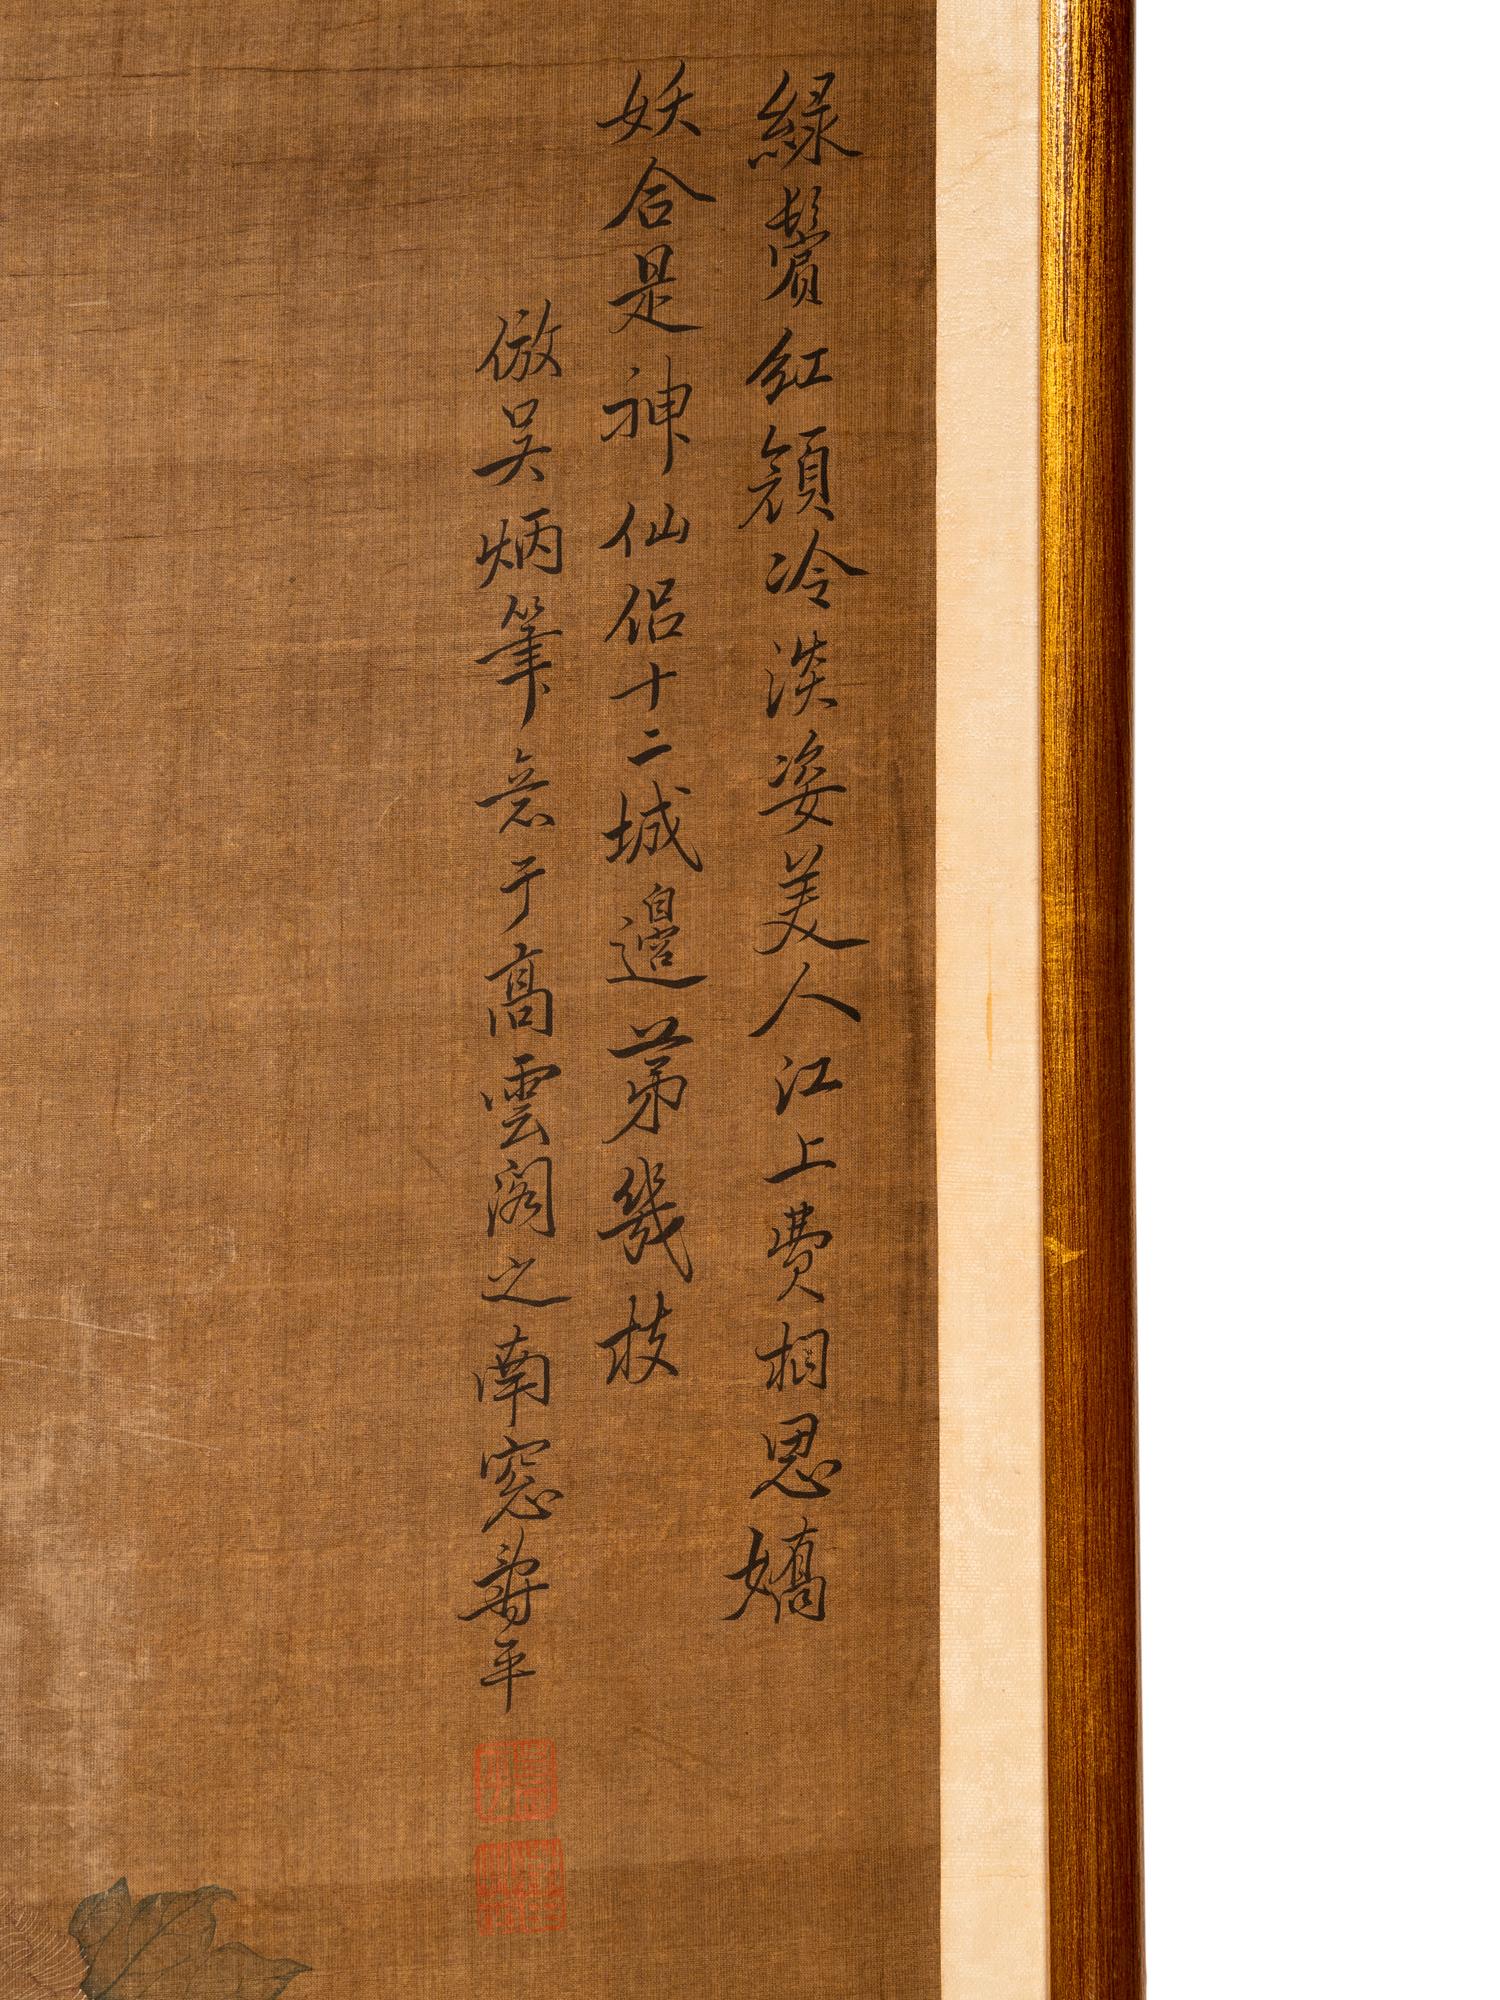 綠鬢紅顏冷淡姿美人江上費相思嬌
妖合是神仙侶十二城邊苐幾枝
倣吳炳筆意于高雲閣之南窓壽平